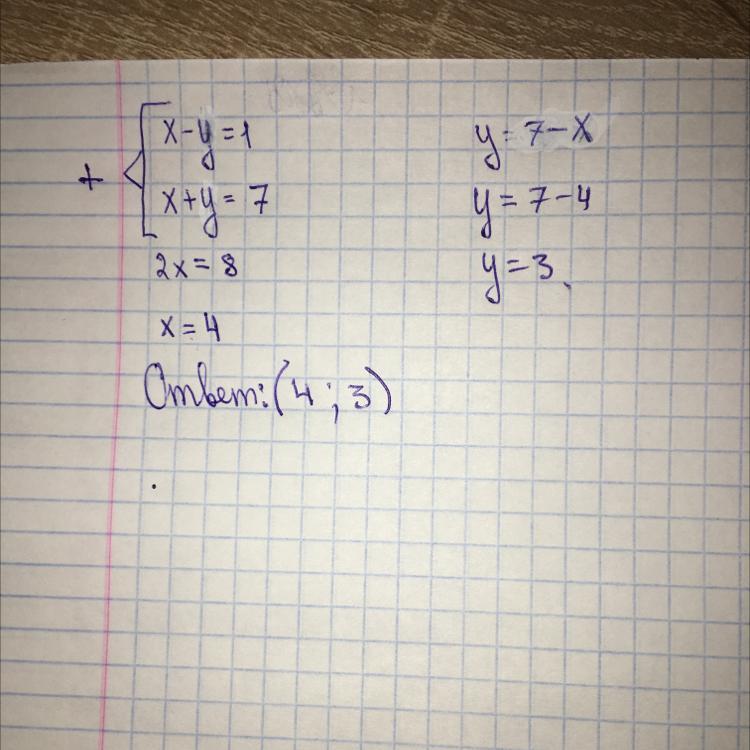 + { x-y=1
x+y=7
2x=8
x=4
y=7-x
y=7-4
y=3
Ответ: (4;3)